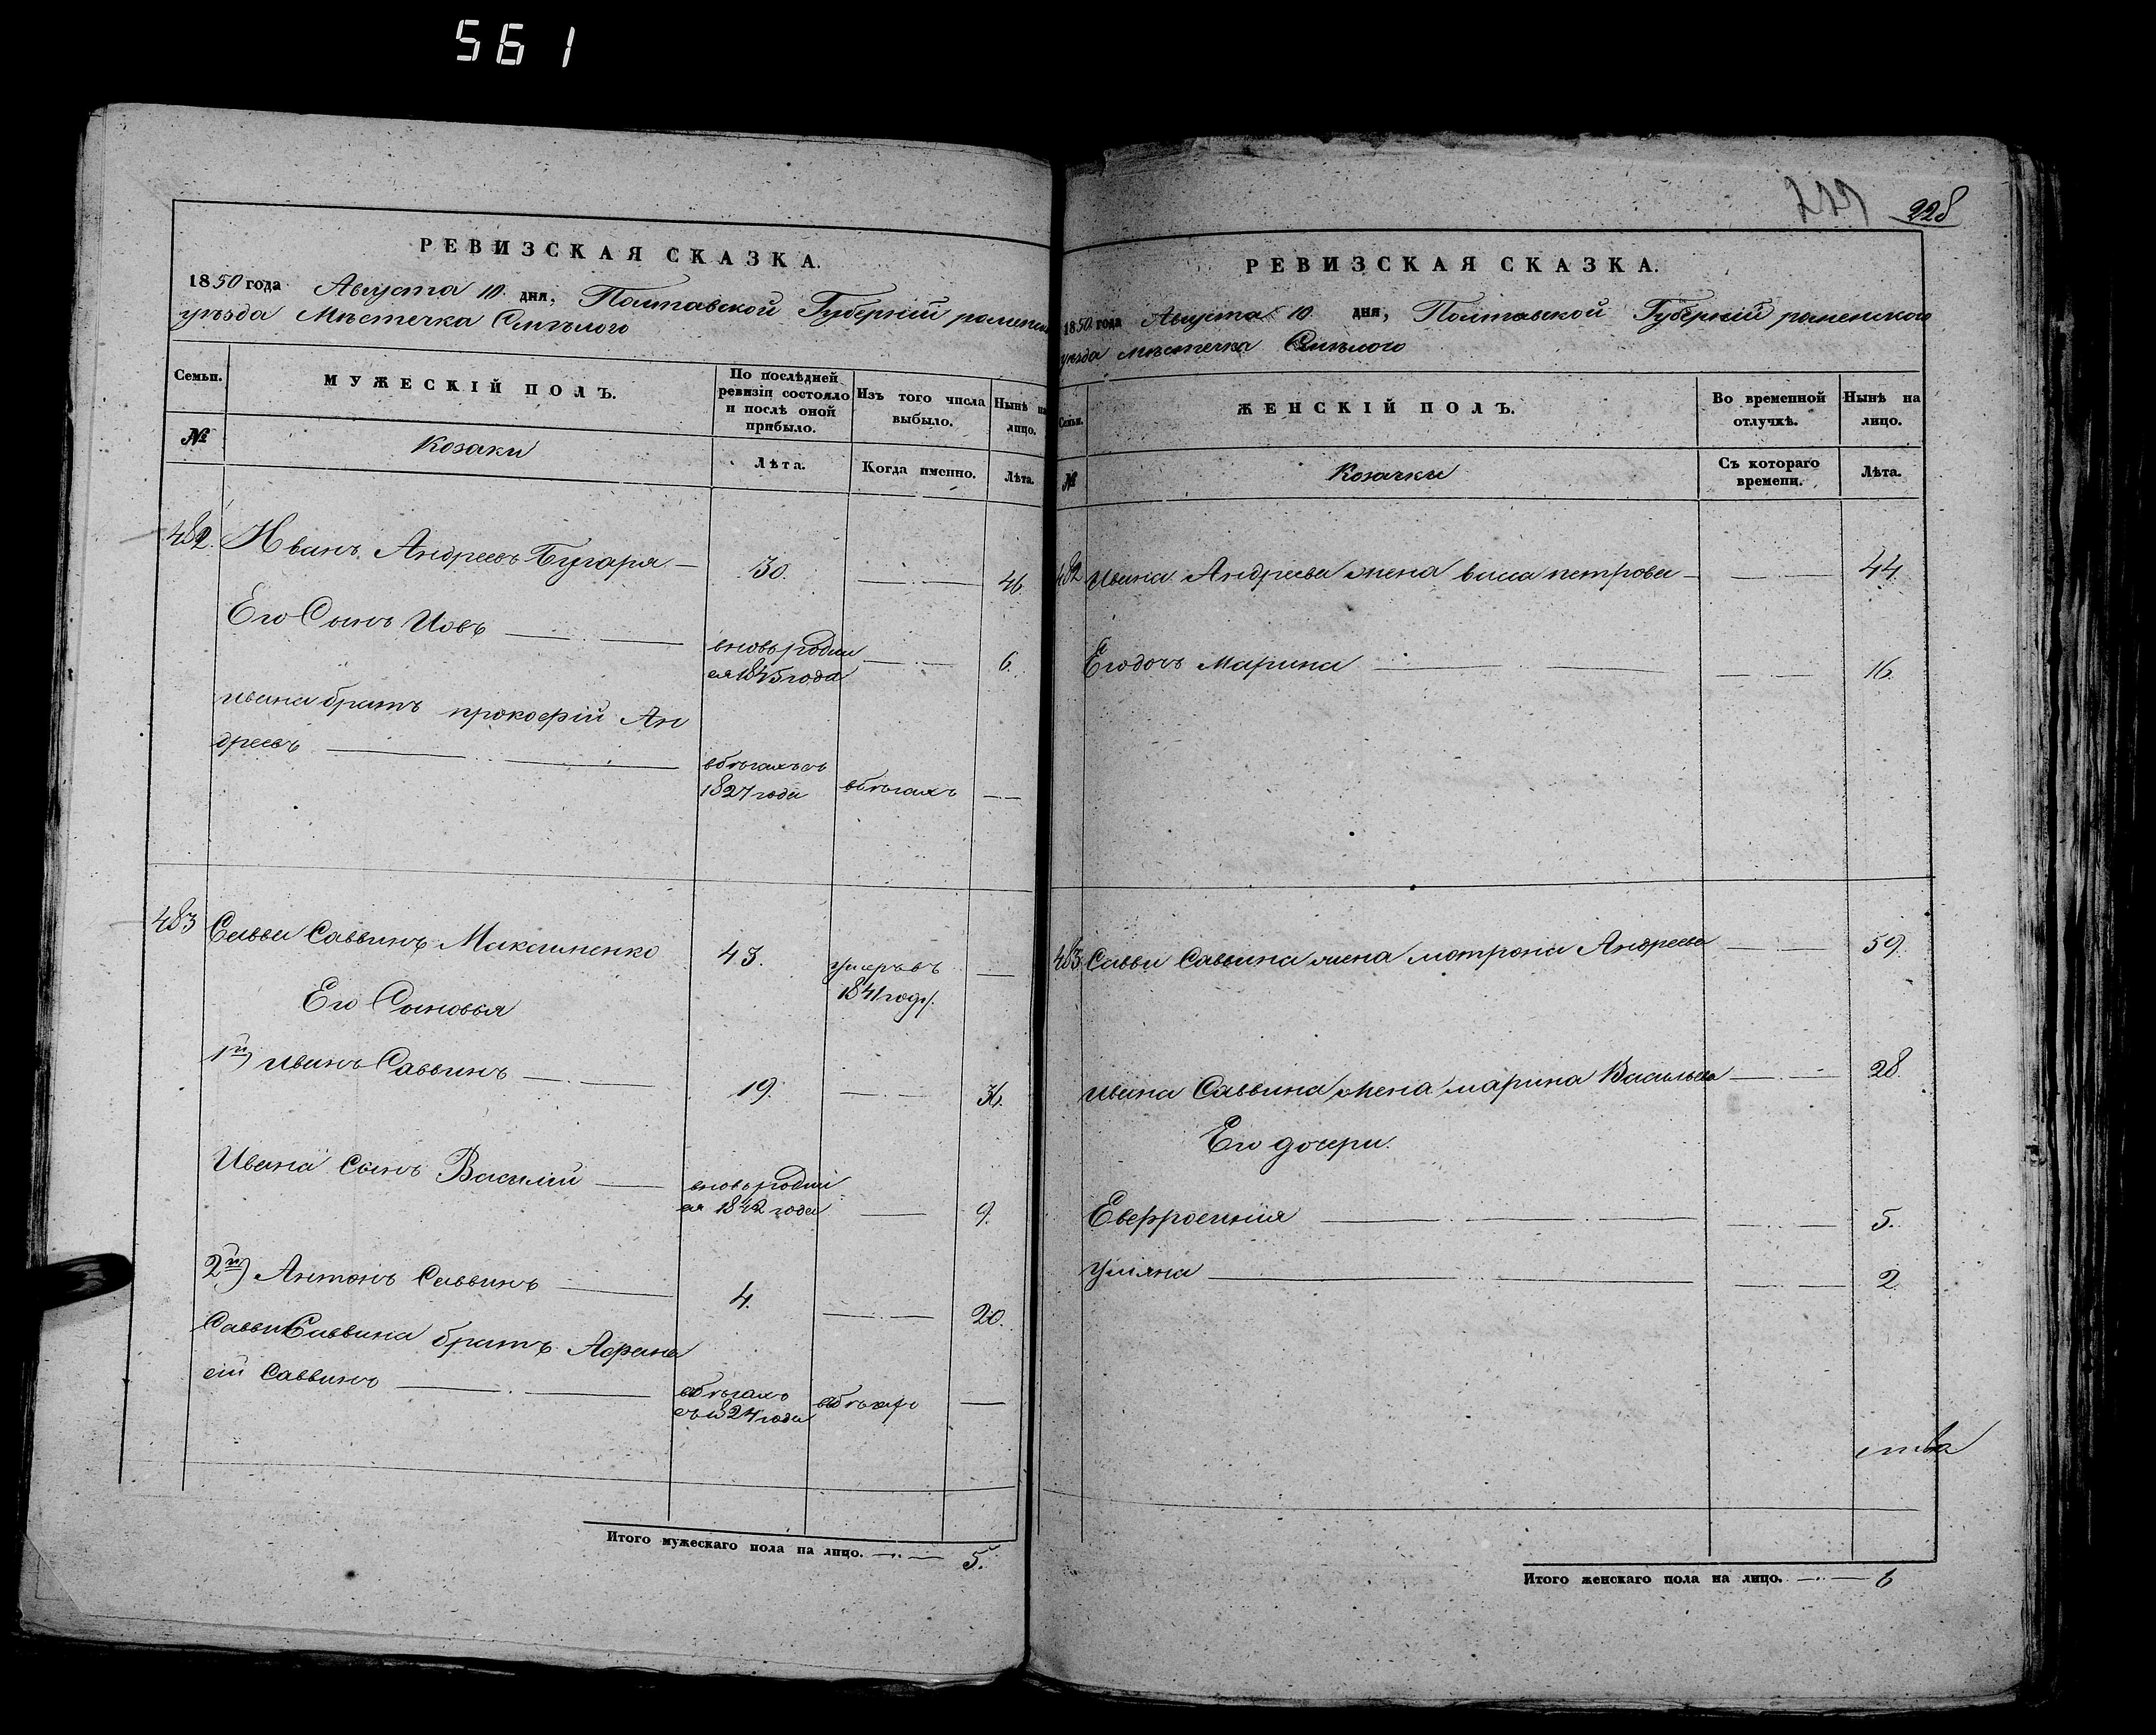 561
РЕВИЗСКАЯ СКАЗКА.
1850 года Августа 10 дня, Полтавской Губерніи роменска
уѣзда Мѣстечка Смѣлого
Семьи.
МУЖЕСКІЙ ПОЛЪ.
По послѣдней
ревизіи состояло
и послѣ оной
прибыло.
Изъ того числа
выбыло.
Нынѣ на
лицо.
№
Козаки
Лѣта.
Когда именно.
Лѣта.
482. Иванъ Андреевъ Бугаря 30. 46.
Его Сынъ Иовъ вновь родил
ся 1845 года 6.
ивана братъ прокофій Ан
дреевъ вбѣгахъ съ
1827 года вбѣгахъ
483 Савва Саввинъ Максименко 43. умеръ въ
1841 году.
Его Сыновья
1й) иванъ Саввинъ 19. 36.
Ивана Сынъ Василій вновь родил
ся 1842 года 9.
2й) Антонъ Саввинъ 4. 20.
Саввы Саввина братъ Афана
сій Саввинъ вбѣгахъ
съ 1824 года вбѣгахъ
Итого мужескаго пола на лицо. 5.
228
РЕВИЗСКАЯ СКАЗКА.
1850 года Августа 10 дня, Полтавской Губерніи роменского
уѣзда мѣстечка Смѣлого
Семьи.
ЖЕНСКІЙ ПОЛЪ.
Во временной
отлучкѣ.
Нынѣ на
лицо.
№
Козачки
Съ котораго
времени.
Лѣта.
482 Ивана Андреева жена васса петрова 44.
Его дочь Марина 16.
483 Саввы Саввина жена мотрона Андреева 59.
ивана Саввина жена марина Васильева 28.
Его дочери.
Евфросинія 5.
Уліяна 2.
Итого женскаго пола на лицо. 6